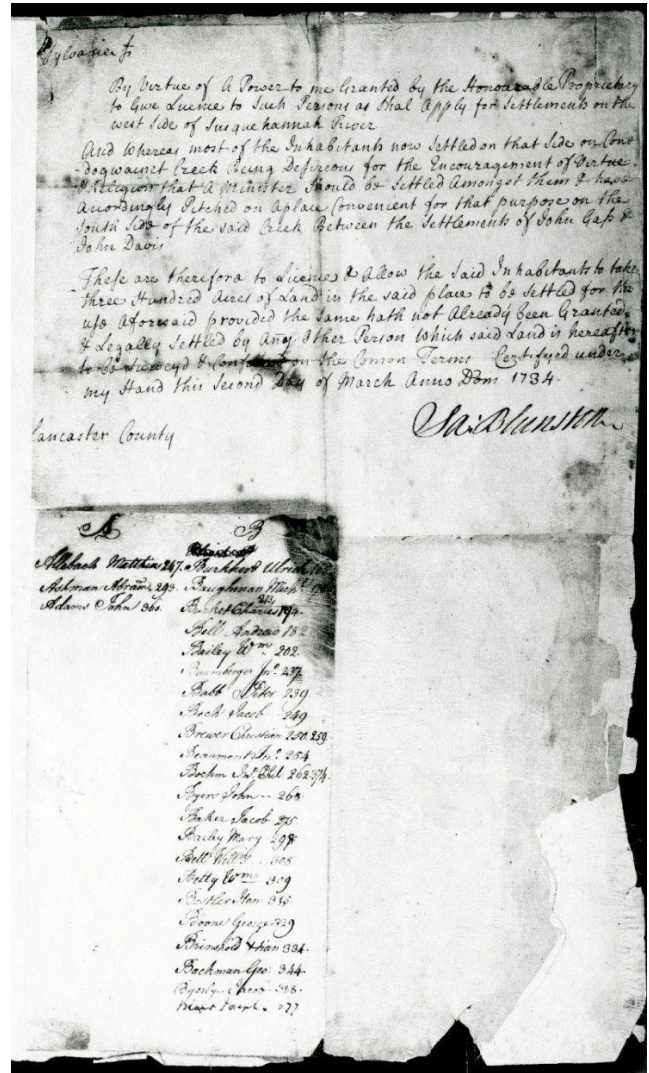 By Virtue of A Power to me Granted by the Honourable Proprietary
to Give Licence to Such Persons as Shal Apply for Settlements on the
west Side of Susquehannah River
And Whereas most of the Inhabitants now Settled on that Side on Cone
dogwainet Creek Being Desireous for the Encouragement of Virtue
& Religion that A Minister Should be Settled Amongst them & have
Accordingly Pitched on A place Convenient for that purpose on the
South Side of the said Creek Between the Settlements of John Gass &
John Davis
These are therefore to Licence & Allow the Said Inhabitants to take
three Hundred Acres of Land in the said place to be settled for the
use Aforesaid provided the Same hath not Already been Granted
& Legally Settled by Any Other Person Which said Land is hereafter
to be on the Comon Terms Certifyed under
my Hand this Second Day of March Anno Dom 1734.
Sa: Blunston
Lancaster County
A
B
Allabach Matthia 247.
Ashman Abram 293.
Adams John 360.
Burkherd Ulrich
Baughman Mich
Burket Charles 194
Bell Andrew 182
Bailey Wm. 202.
Baumberger Jno. 237
Babb Peter 239
Boch Jacob 249
Brewer Christian 250.259
Beaumont Jno. 254
Boehm Jno. Phil. 262.374.
Byers John 268.
Baker Jacob 275
Bailey Mary 298
Bell Willm 308
Betty Wm 309
Bostler Hen 315
Boone George 329
334.
Bachman Geo: 344
Byerly Jacob
Joseph